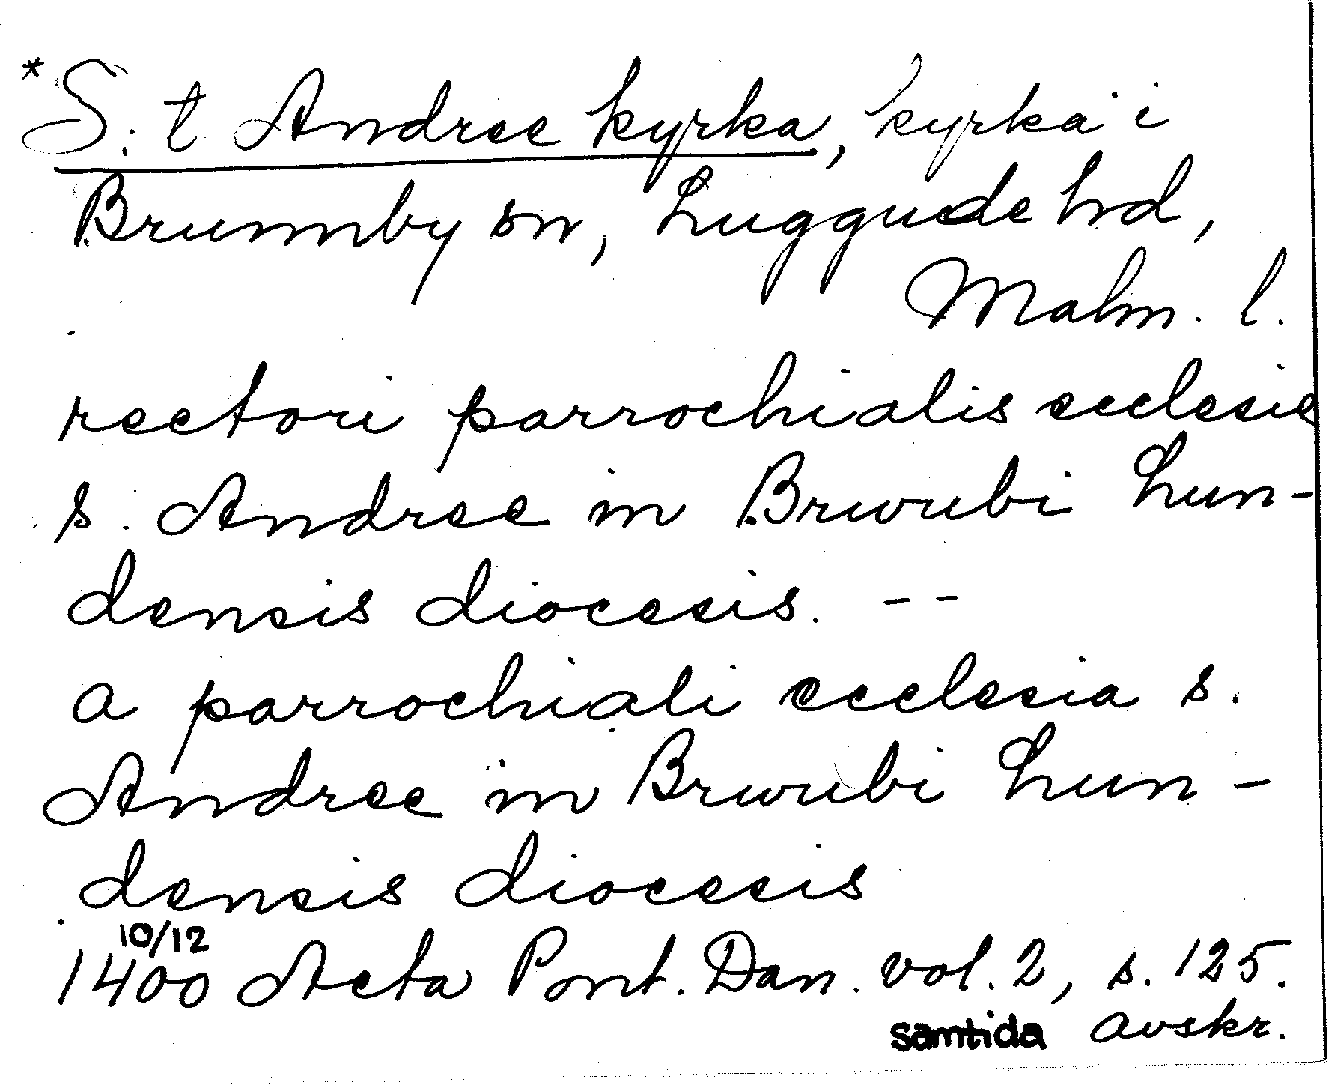 * S:t Andree kyrka, kyrka i
Brunnby sn, Luggude hd,
Malm. l.
rectori parrochialis ecclesie
s. Andree in Brwubi Lun-
densis diocesis. --
a parrochiali ecclesia s.
Andree in Brwubi Lun-
densis diocesis
10/12
1400 Acta Pont. Dan. vol. 2, s. 125.
samtida avskr.